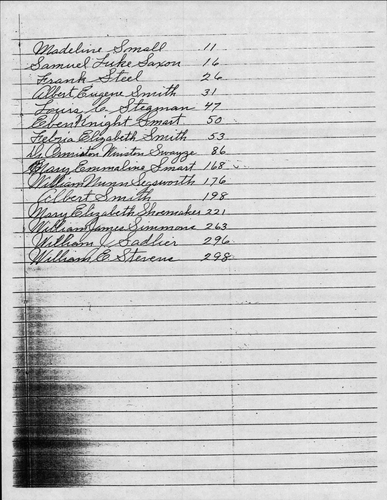 Madeline Small 11
Samuel Luke Saxon 16
Frank Steel 26
Albert Eugene Smith 31
Louis C. Stegman 47
Eben Knight Smart 50
Felzia Elizabeth Smith 53
Dr Ormiston Winston Swayze 86
Mary Emmaline Smart 168
William Nunn Segsworth 176
Albert Smith 198
Mary Elizabeth Shoemaker 221
William James Simmons 263
William J Sadlier 296
William E Stevens 298